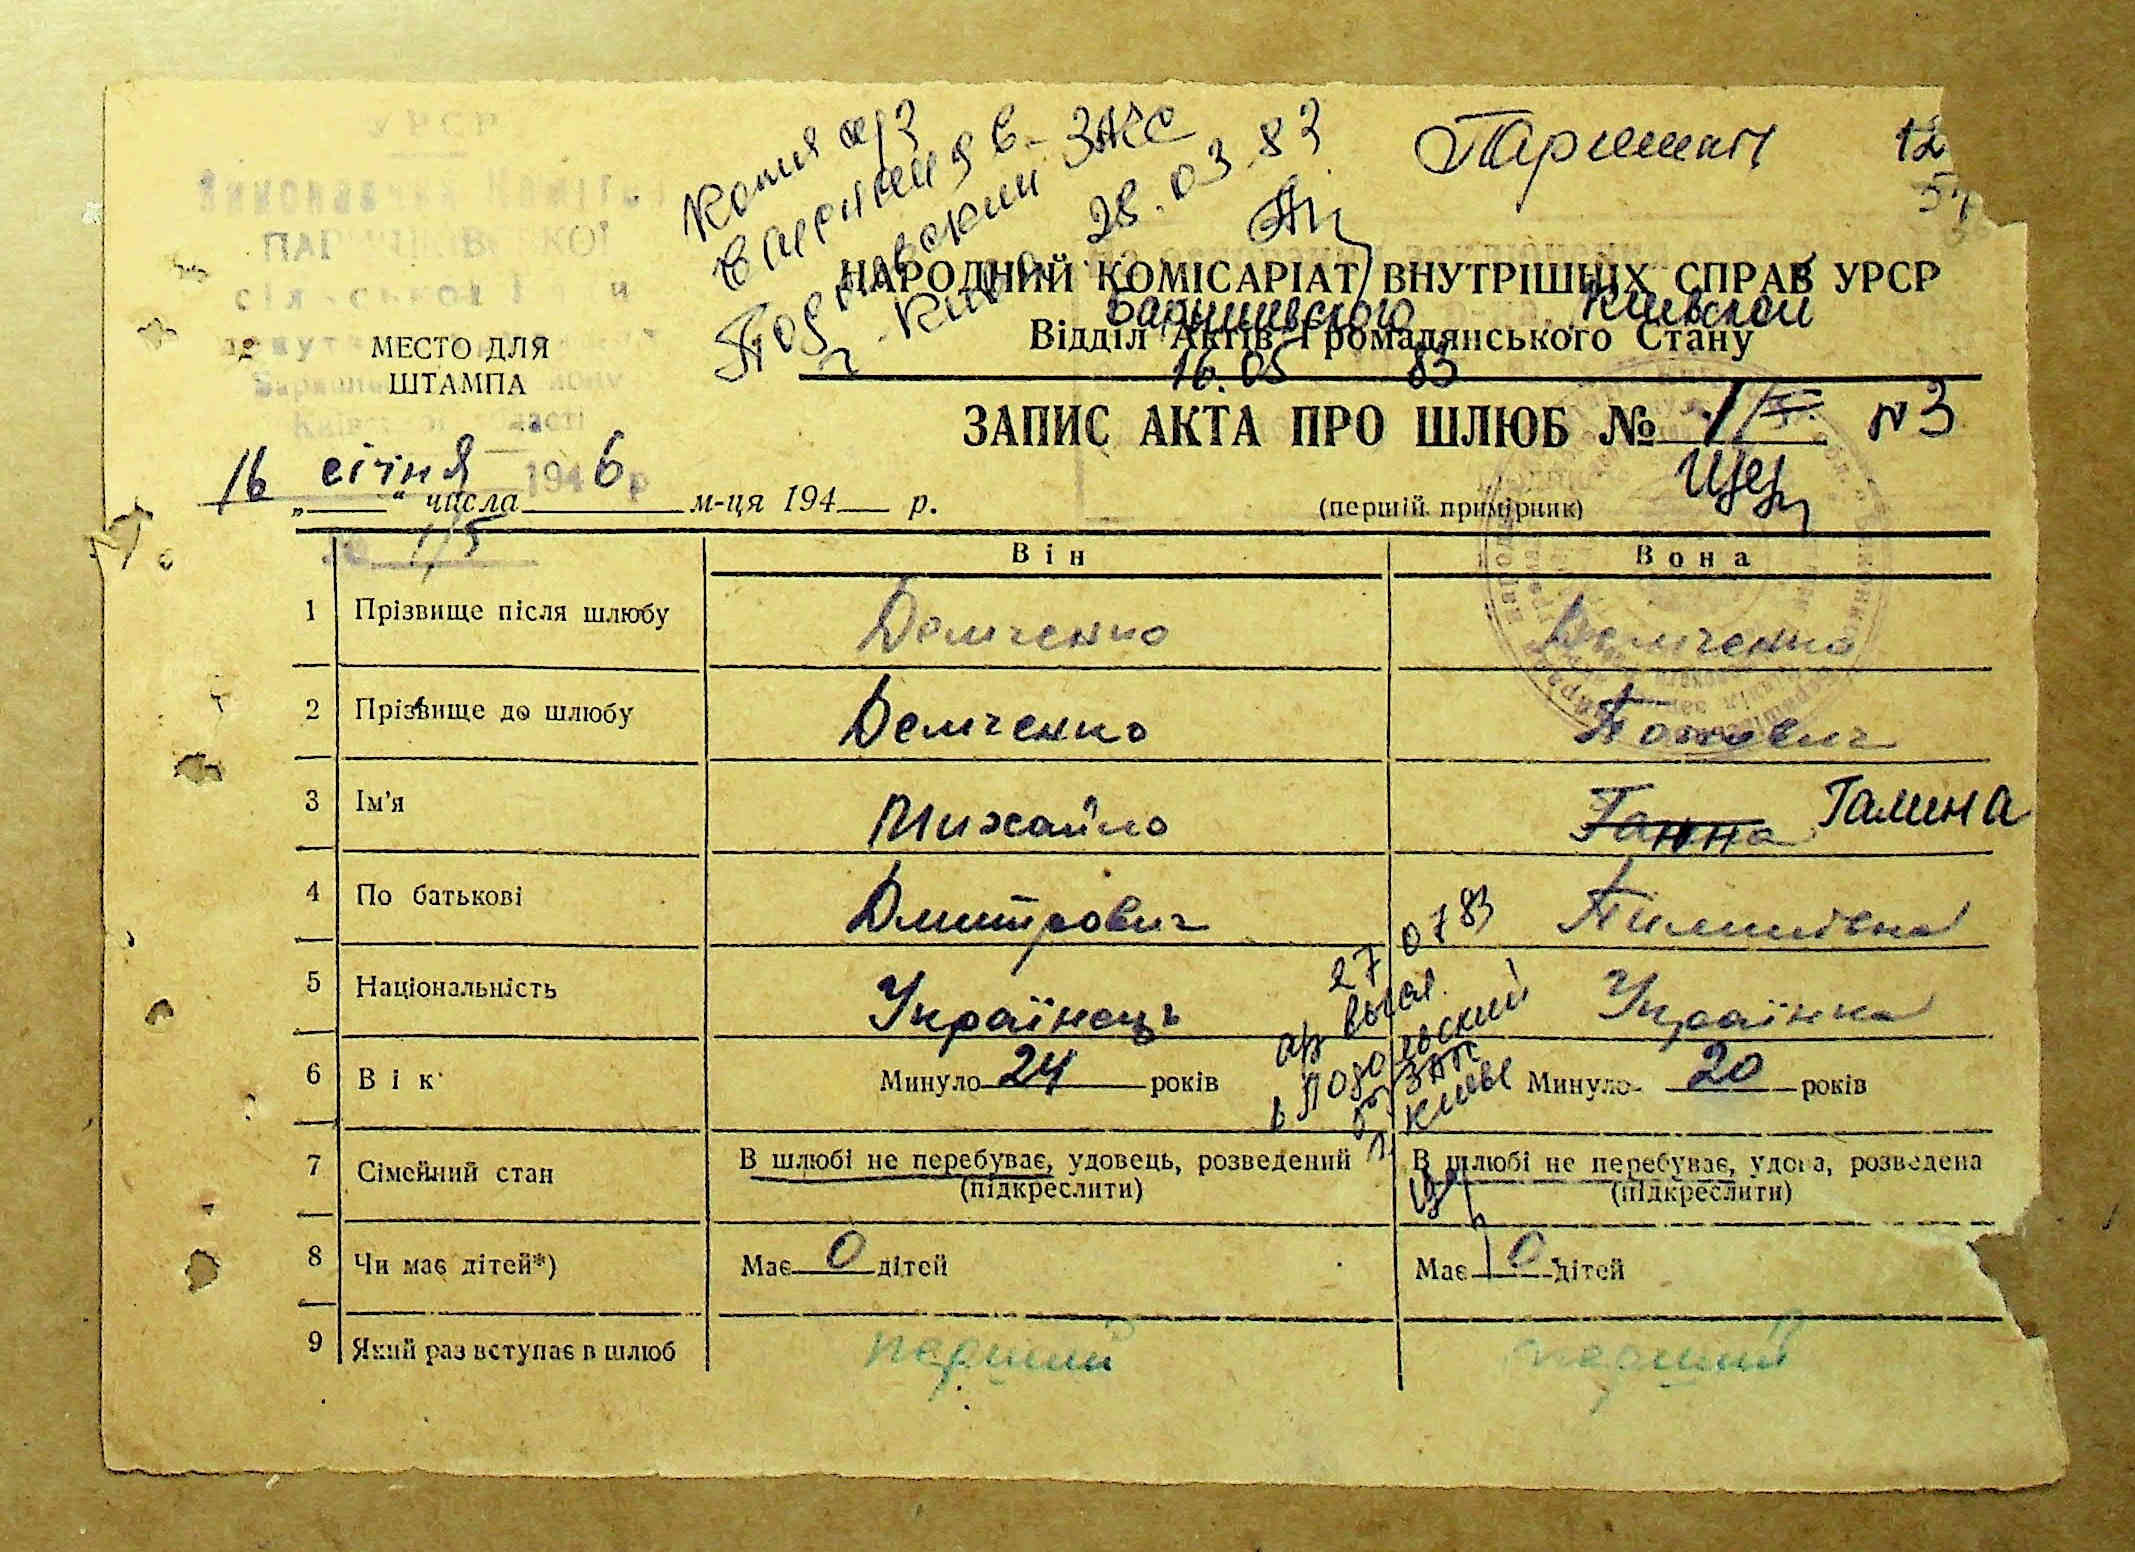 УРСР
Виконавчий Комітет
сільської Ради
Київської області
16 січня 1946 р
1/5
МЕСТО ДЛЯ
ШТАМПА
Копия а/з
в
Подольский ЗАГС
г. Киева 28.03.83
Паришків
12
НАРОДНИЙ КОМІСАРІАТ ВНУТРІШНІХ СПРАВ УРСР
Баришевского Киевской
Відділ Актів Громадянського Стану
16.05 83
ЗАПИС АКТА ПРО ШЛЮБ № 1 N3
„ “ числа м-ця 194 р.
(перший примірник)
Він Вона
1 Прізвище після шлюбу Демченко Демченко
2 Прізвище до шлюбу Демченко
3 Ім'я Михайло Ганна Галина
4 По батькові Дмитрович Пилипівна
5 Національність Українець Українка
6 Вік Минуло 24 років Минуло 20 років
27 07 83
а/з высл.
в Подольский
ЗАГС
г. Киева
7 Сімейний стан В шлюбі не перебуває, удовець, розведений В шлюбі не перебуває, удова, розведена
(підкреслити) (підкреслити)
8 Чи має дітей*) Має 0 дітей Має 0 дітей
9 Який раз вступає в шлюб перший перший